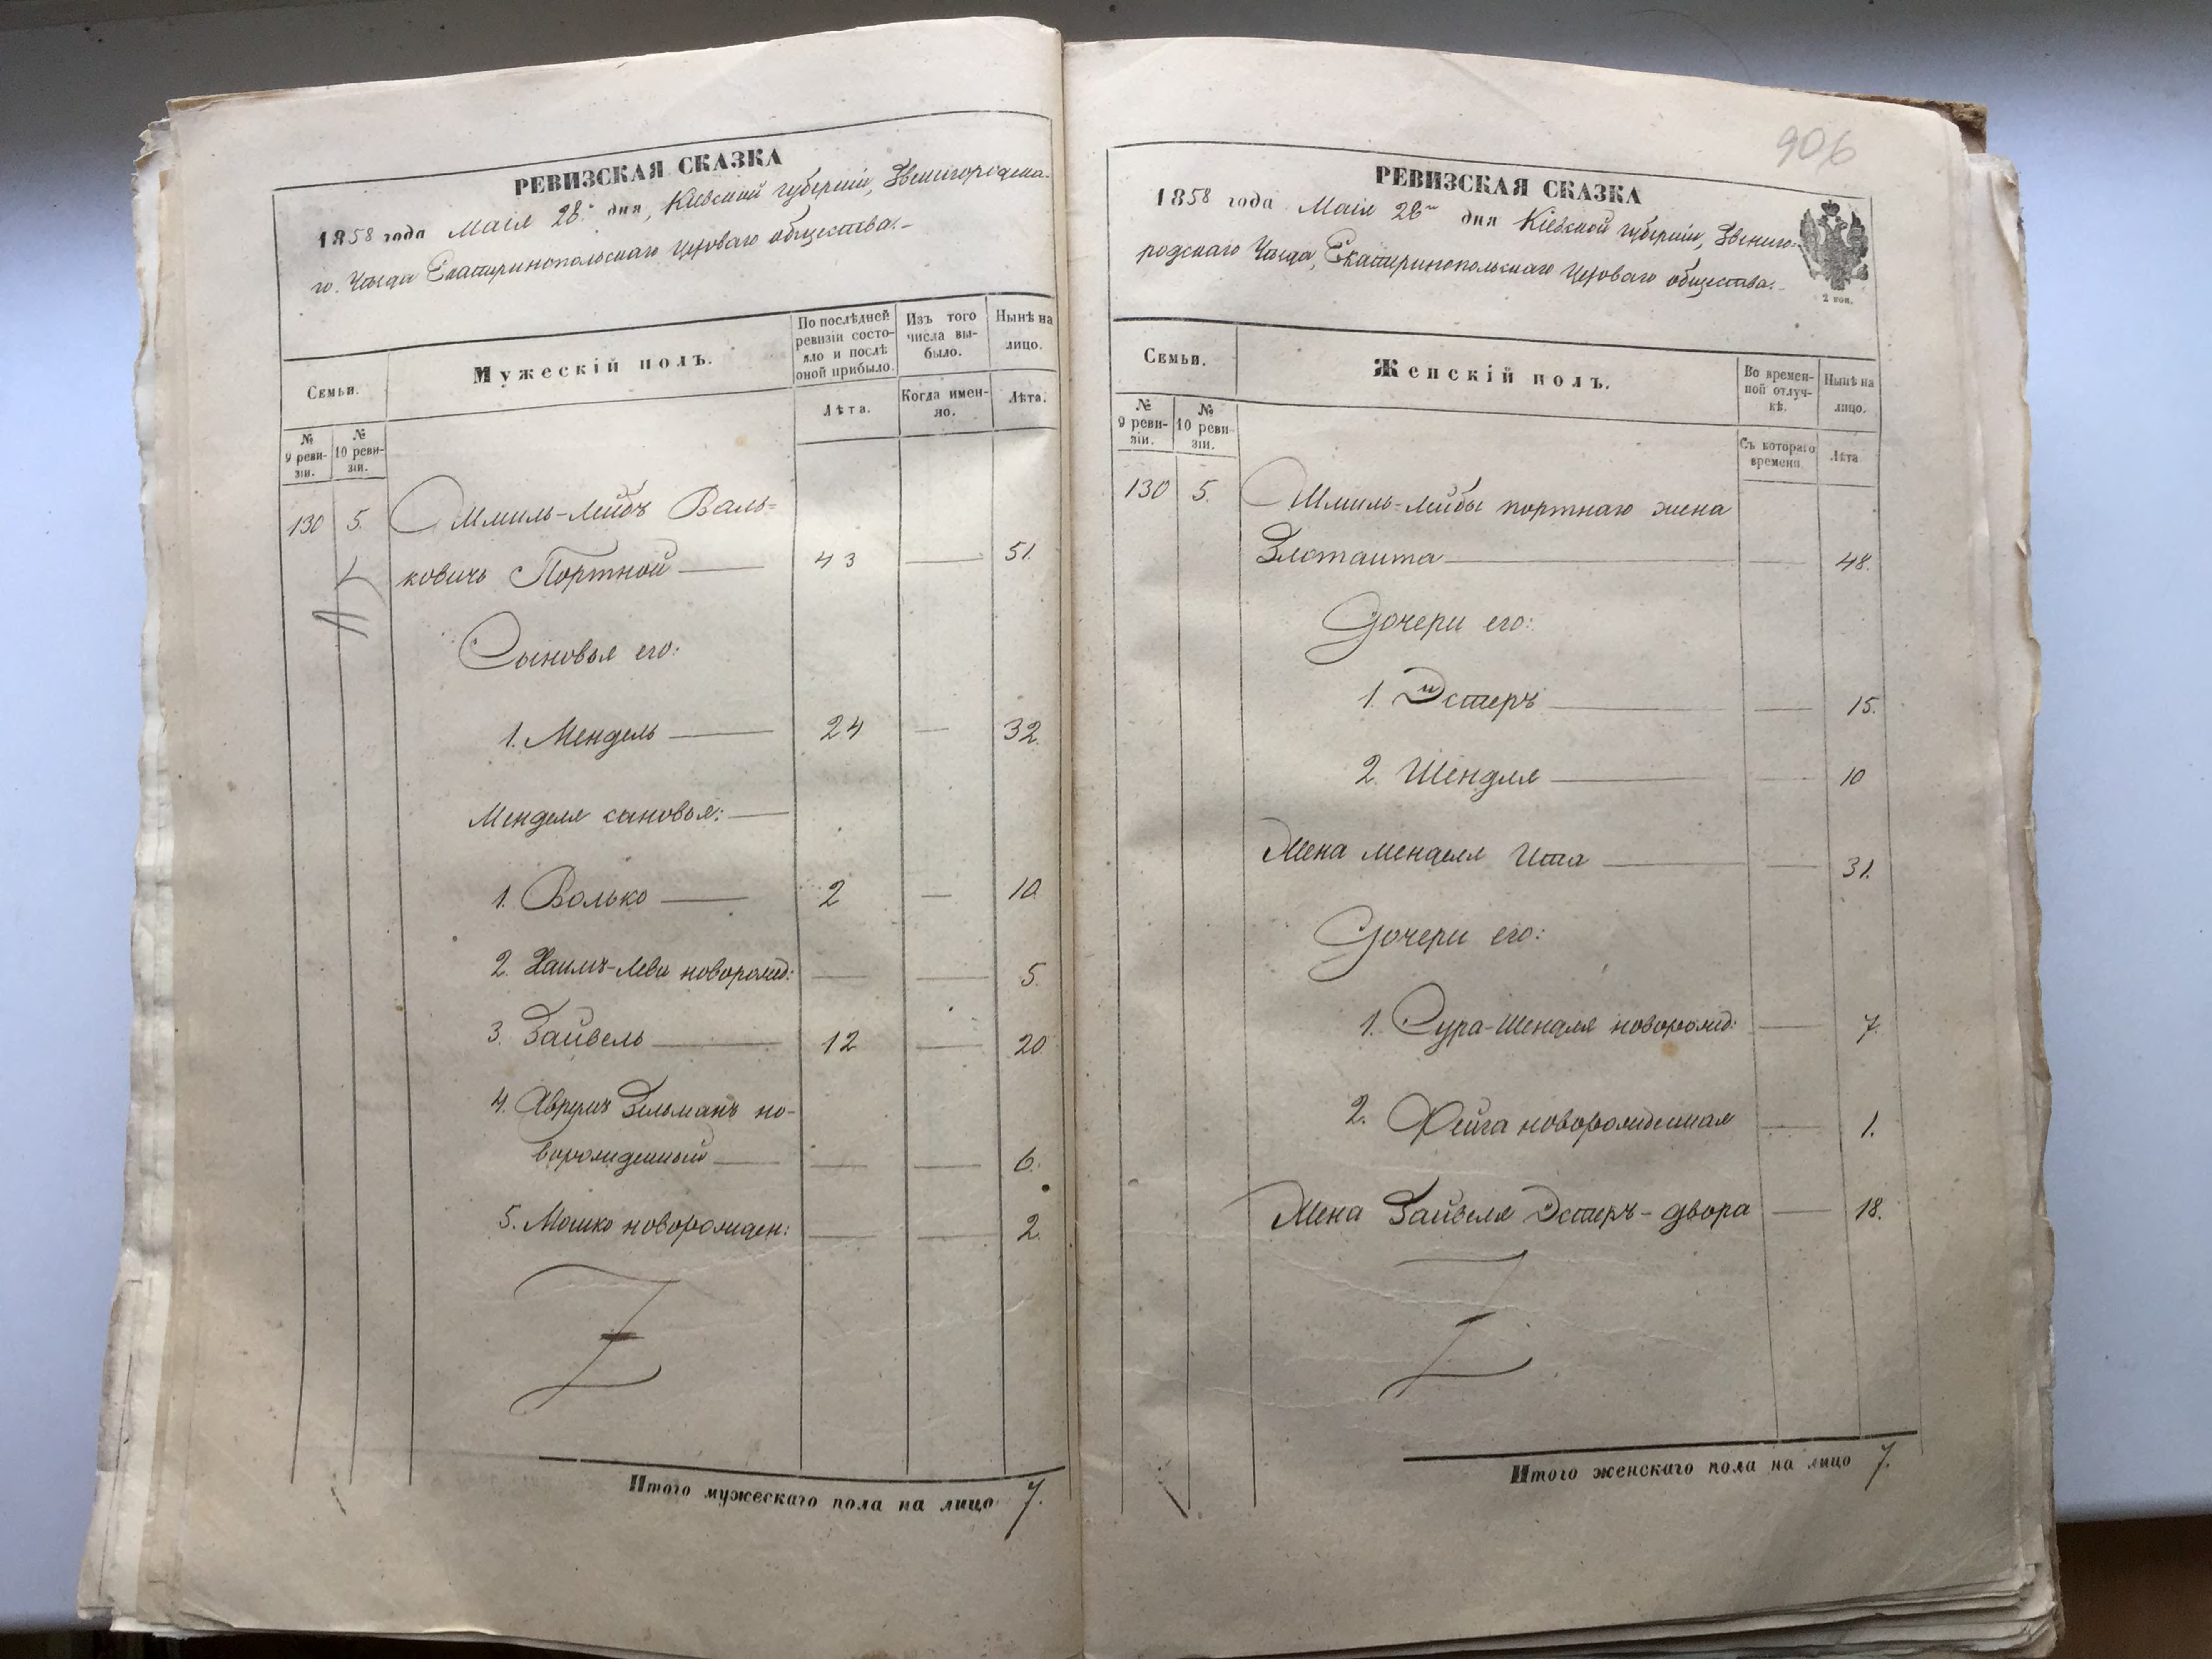 РЕВИЗСКАЯ СКАЗКА
1858 года Маія 28. дня, Кіевской губерніи, Звенигородска-
го. Уѣзда Екатеринопольскаго Евроваго общества.-
Семьи.
Мужескій полъ.
По послѣдней ревизіи состо-
яло и послѣ
оной прибыло.
Изъ того
числа вы-
было.
Нынѣ на
лицо.
Лѣта.
Когда имен-
но.
Лѣта.
№
9 реви-
зіи.
№
10 реви-
зіи.
130 5. Шмиль-Лейбъ Валь-
ковичъ Портной 43 51.
Сыновья его:
1. Мендель 24 32.
Менделя сыновья:
1. Волько 2 10.
2. Хаимъ-Леви новорожд: 5.
3. Зайвель 12 20
4. Аврумъ Зельманъ но-
ворожденный 6.
5. Мошко новорожден: 2.
Итого мужескаго пола на лицо 7.
906
РЕВИЗСКАЯ СКАЗКА
1858 года Маія 28 дня Кіевской губерніи, Звениго-
родскаго Уѣзда, Екатеринопольскаго Евроваго общества.
2 коп.
Семьи.
Женскій полъ.
Во времен-
ной отлуч-
кѣ.
Нынѣ на
лицо.
Съ котораго
времени
Лѣта
№
9 реви-
зіи.
№
10 реви-
зіи.
130 5. Шмиль-Лейбы портнаго жена
Злотаита 48.
Дочери его:
1. Эстеръ 15.
2. Шендля 10
Жена Менделя Ита 31.
Дочери его:
1. Сура-Шендля новорожд: 7.
2. Фейга новорожденная 1.
Жена Зайвеля Эстеръ-двора 18.
Итого женскаго пола на лицо 7.